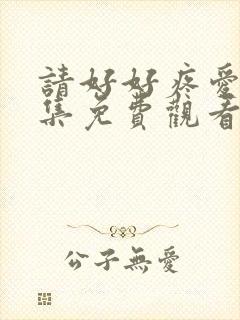 請好好疼愛
集免費觀看
公子無愛